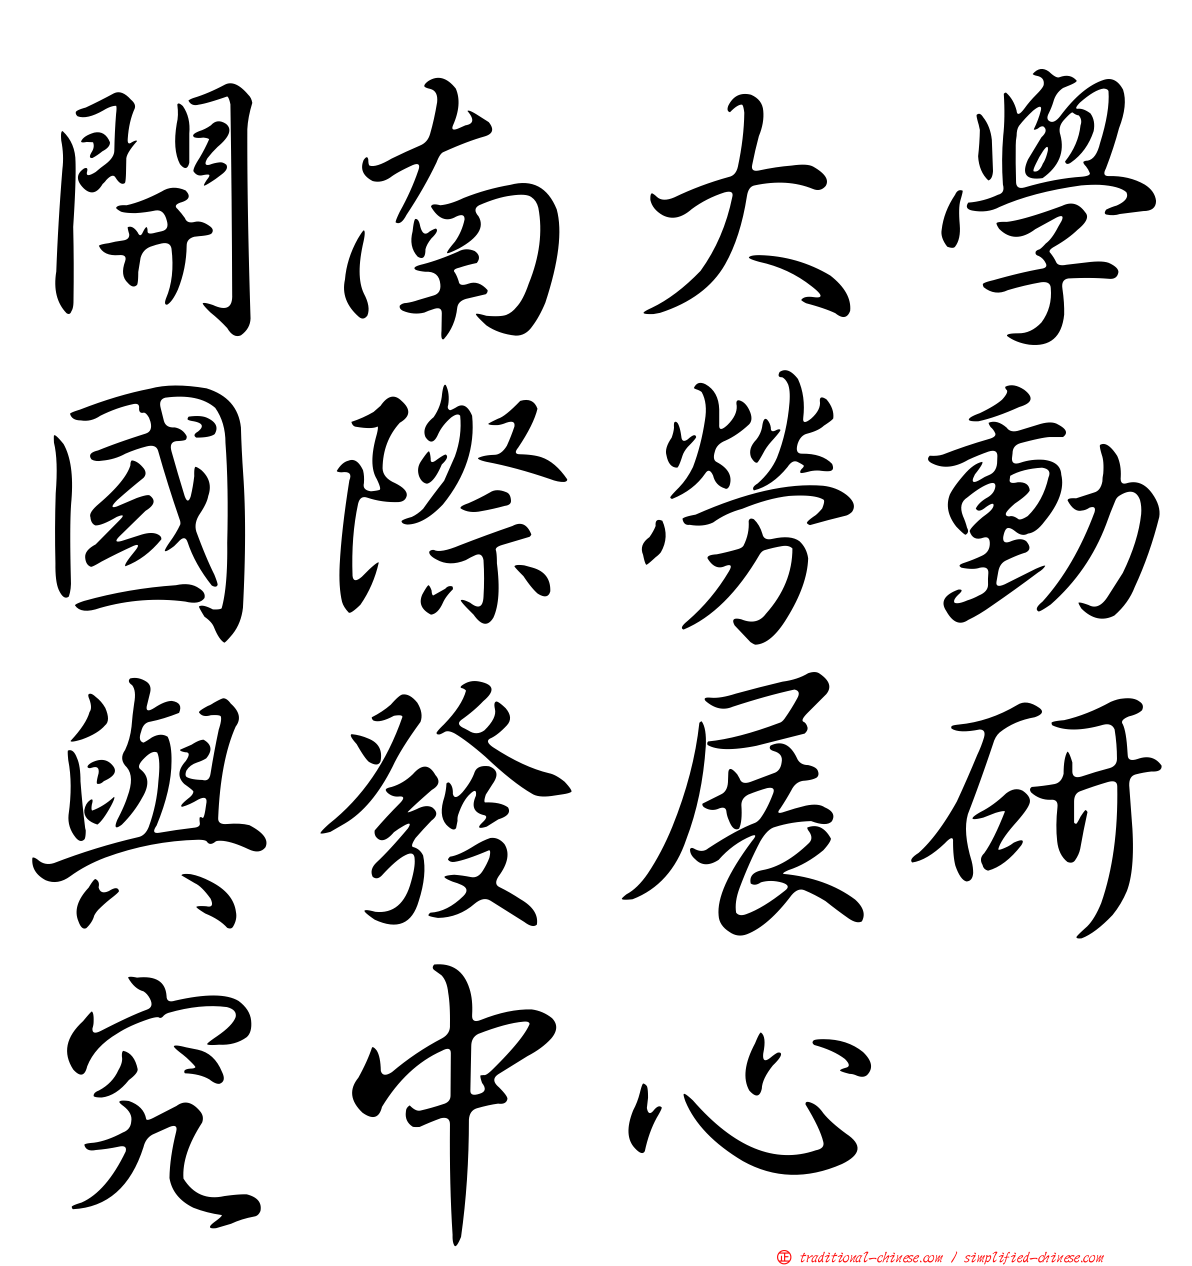 開南大學
國際勞動
與發展研
究中心
正 traditional-chinese.com / simplified-chinese.com